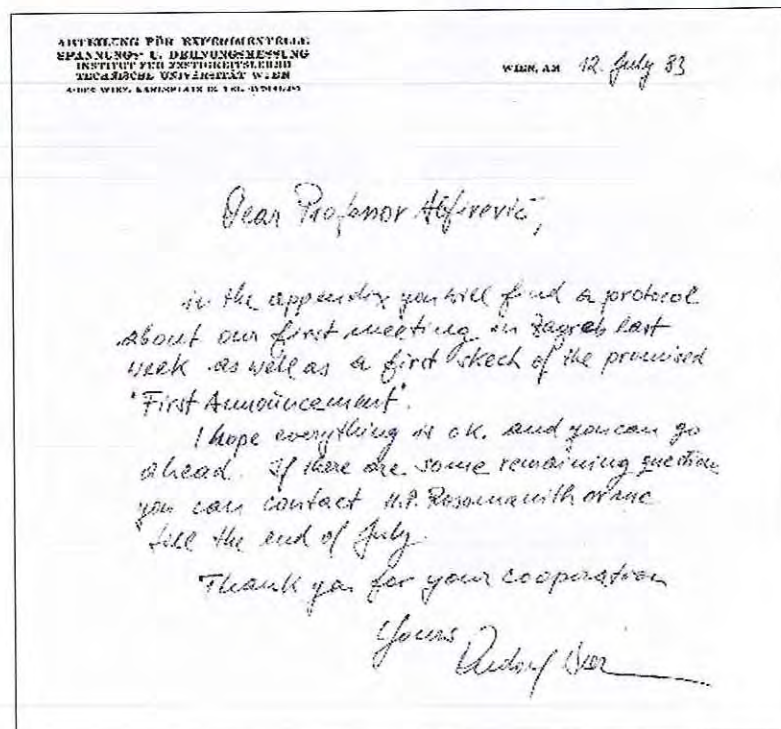 ABTEILUNG FÜR EXPERIMENTELLE
SPANNUNGS- U. DEHNUNGSMESSUNG
INSTITUT FÜR FESTIGKEITSLEHRE
TECHNISCHE UNIVERSITÄT WIEN
WIEN, KARLSPLATZ TEL.
WIEN, AM 12. July 83
Dear Professor Alfirević,
in the appendix you will find a protocol
about our first meeting in Zagreb last
week as well as a first skech of the promised
"First Announcement".
I hope everything is ok. and you can go
ahead. If there are some remaining question
you can contact H.P. Rossmanith or me
till the end of July.
Thank you for your cooperation
Yours
Rudolf